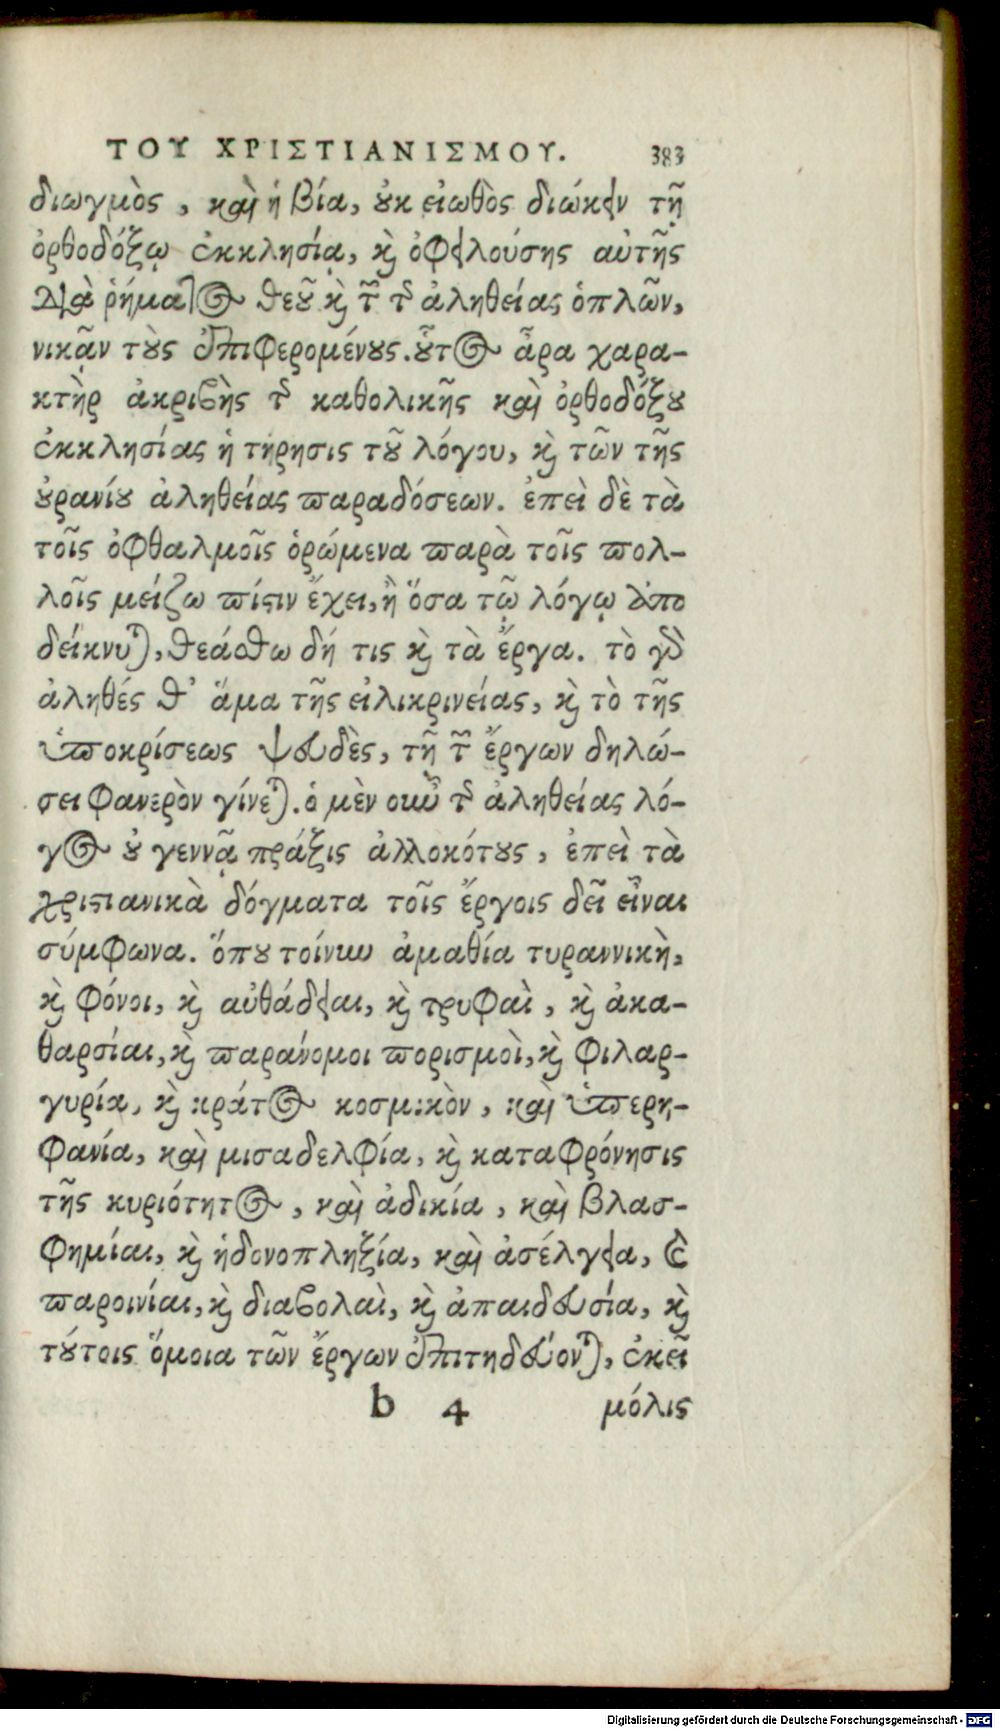 ΤΟΥ ΧΡΙΣΤΙΑΝΙΣΜΟΥ. 383
διωγμὸς, καὶ ἡ βία, ȣκ εἰωθὸς διώκειν τῇ
ὀρθοδόξῳ ἐκκλησίᾳ, ϗ ὀφειλούσης αὐτῆς
διὰ ῥήματος θεοῦ ϗ τῶν τῆς ἀληθείας ὁπλῶν,
νικᾷν τὸυς ἐπιφερομένȣς. ȣ̓͂τος ἆρα χαρα-
κτὴρ ἀκριβὴς τῆς καθολικῆς καὶ ὀρθοδόξȣ
ἐκκλησίας ἡ τήρησις τοῦ λόγου, ϗ τῶν τῆς
ȣρανίȣ ἀληθείας παραδόσεων. ἐπεὶ δὲ τὰ
τοῖς ὀφθαλμοῖς ὁρώμενα παρὰ τοῖς πολ-
λοῖς μείζω πίστιν ἔχει, ἢ ὅσα τῷ λόγῳ ἀπο
δείκνυται, θεάσθω δή τις ϗ τὰ ἔργα. τὸ γὰρ
ἀληθές θ᾽ ἅμα τῆς εἰλικρινείας, ϗ τὸ τῆς
ὑποκρίσεως ψευδὲς, τῇ τῶν ἔργων δηλώ-
σει φανερὸν γίνεται. ὁ μὲν οὖν τῆς ἀληθείας λό-
γος ȣ γεννᾷ πράξις ἀλλοκότȣς, ἐπεὶ τὰ
χριστιανικὰ δόγματα τοῖς ἔργοις δεῖ εἶναι
σύμφωνα. ὅπȣ τοίνυν ἀμαθία τυραννικὴ,
ϗ φόνοι, ϗ αὐθάδειαι, ϗ τρυφαὶ, ϗ ἀκα-
θαρσίαι, ϗ παράνομοι πορισμοὶ, ϗ φιλαρ-
γυρία, ϗ κράτος κοσμικὸν, καὶ ὑπερη-
φανία, καὶ μισαδελφία, ϗ καταφρόνησις
τῆς κυριότητος, καὶ ἀδικία, καὶ βλασ-
φημίαι, ϗ ἡδονοπληξία, καὶ ἀσέλγεια, ϗ
παροινίαι, ϗ διαβολαὶ, ϗ ἀπαιδευσία, ϗ
τȣ́τοις ὅμοια τῶν ἔργων ἐπιτηδεύονται, ἐκεῖ
b 4 μόλις
Digitalisierung gefördert durch die Deutsche Forschungsgemeinschaft - DFG